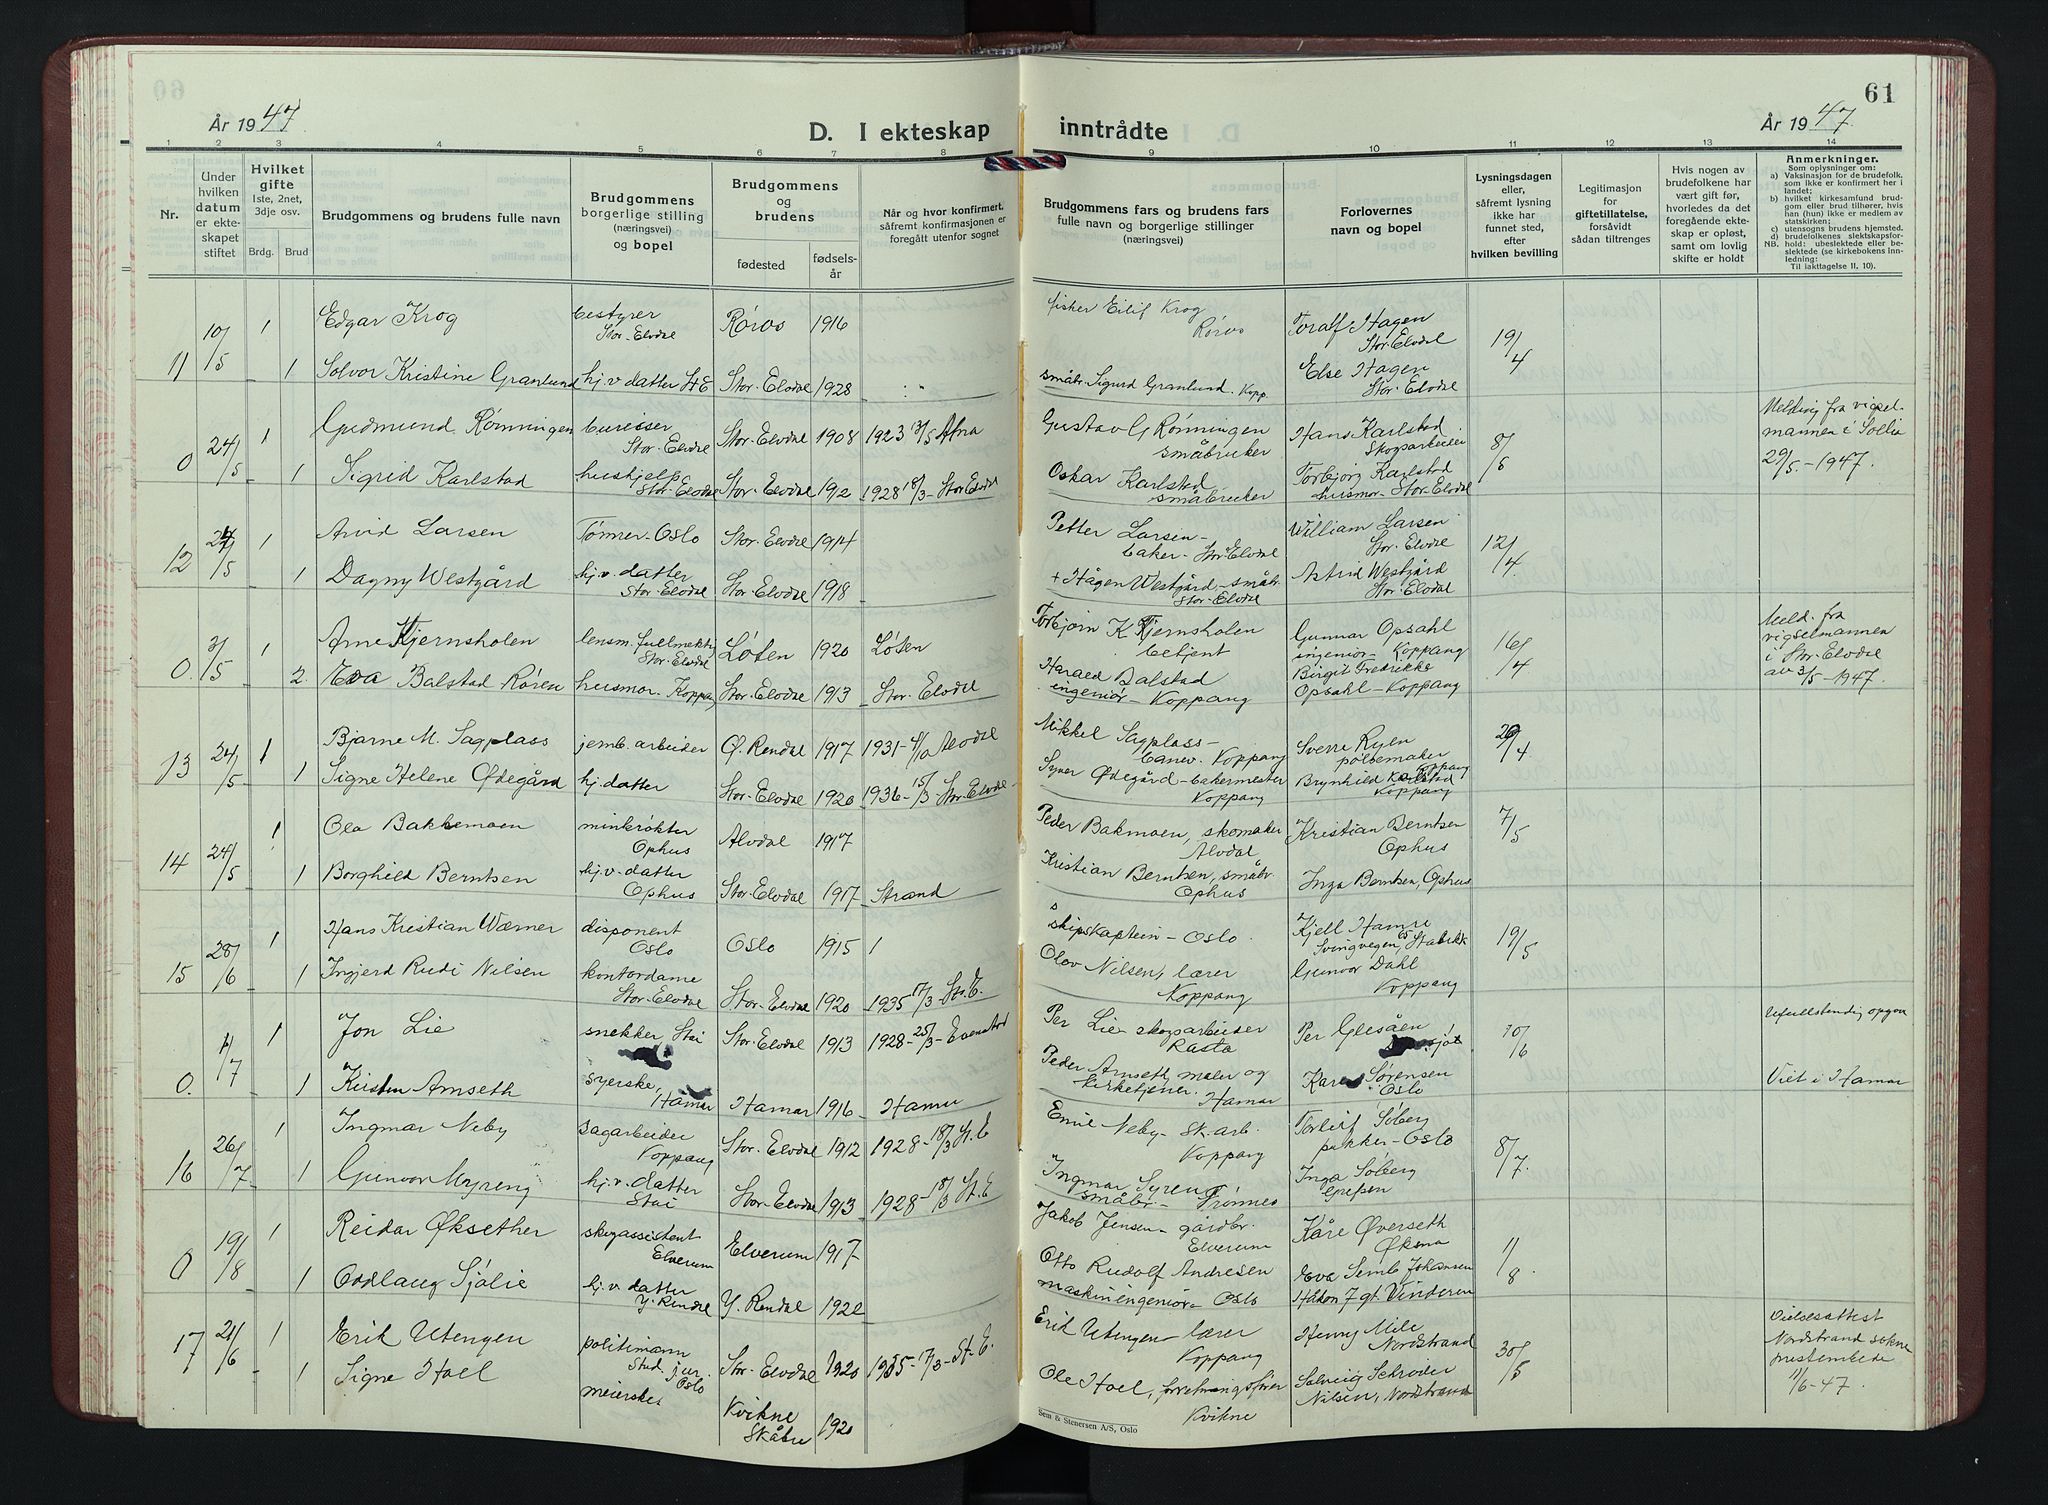 År 1947
D. I ekteskap
1 2 3 4 5 6 7 8
Nr.
Under hvilken datum er ekteskapet stiftet
Hvilket gifte
1ste, 2net, 3dje osv.
Brdg. Brud
Brudgommens og brudens fulle navn
Brudgommens borgerlige stilling (næringsvei) og bopel
Brudgommens og brudens
fødested
fødselsår
Når og hvor konfirmert, såfremt konfirmasjonen er foregått utenfor sognet
11 10/5 1 Edgar Krog bestyrer Stor-Elvdal Røros 1916
1 Solvor Kristine Granlund hj.v. datter St E Stor-Elvdal 1928
0 24/5 1 Gudmund Rønningen bureiser Stor-Elvdal Stor-Elvdal 1908 1923 13/5 Atna
1 Sigrid Karlstad hushjelp Stor-Elvdal Stor-Elvdal 1912 1928 18/3 - Stor Elvdal
12 24/5 1 Arvid Larsen Tømmer-Oslo Stor-Elvdal 1914
1 Dagny Westgård hj.v. datter Stor-Elvdal Stor-Elvdal 1918
0. 3/5 1 Arne Kjernsholen lensm. fullmektig Stor-Elvdal Løten 1920 Løten
2 Eva Balstad Røren husmor - Koppang Stor-Elvdal 1913 Stor-Elvdal
13 24/5 1 Bjarne M. Sagplass jernb. arbeider Ø. Rendal 1917 1931 - 4/10 Alvdal
1 Signe Helene Ødegård hj. datter Stor-Elvdal 1920 1936 - 15/3 Stor-Elvdal
14 24/5 1 Ola Bakkemoen minkrøkter Ophus Alvdal 1917
1 Borghild Berntsen hj.v. datter Ophus Stor-Elvdal 1917 Strand
15 28/6 1 Hans Kristian Wærner disponent Oslo Oslo 1915
1 Ingjerd Rudi Nilsen kontordame Stor-Elvdal Stor-Elvdal 1920 1935 17/3 St. E.
0. /7 1 Jon Lie snekker, Stai Stor-Elvdal 1913 1928 - 25/3 - Evenstad
1 Kirsten Amseth syerske, Hamar Hamar 1916 Hamar
16 26/7 1 Ingmar Neby sagarbeider Koppang Stor-Elvdal 1912 1928 - 18/3 St. E
1 Gunvor Myreng hj.v. datter Stai Stor-Elvdal 1913 1928 - 18/3 St. E
0 19/8 1 Reidar Øksether skogassistent Elverum Elverum 1917
1 Oddlaug Sjølie hj.v. datter Y. Rendal Y. Rendal 1922
17 21/6 1 Erik Utengen politimann Stud. jur. Oslo Stor-Elvdal 1920 1935 - 17/3 - St. E.
1 Signe Hoel meierske Kvikne 1920
61
År 1947
inntrådte
9 10 11 12 13 14
Brudgommens fars og brudens fars fulle navn og borgerlige stillinger (næringsvei)
Forlovernes navn og bopel
Lysningsdagen eller, såfremt lysning ikke har funnet sted, efter hvilken bevilling
Legitimasjon for giftetillatelse, forsåvidt sådan tiltrenges
Hvis nogen av brudefolkene har vært gift før, hvorledes da det foregående ekteskap er opløst, samt om lovlig skifte er holdt
Anmerkninger.
Som oplysninger om:
a) Vaksinasjon for de brudefolk, som ikke er konfirmert her i landet;
b) hvilket kirkesamfund brudgom eller brud tilhører, hvis han (hun) ikke er medlem av statskirken;
c) utensogns brudens hjemsted.
d) brudefolkenes slektskapsforhold:
NB. ubeslektede eller beslektede (se kirkebokens Innledning:
Til iakttagelse II, 10).
fisker Eilif Krog Røros Toralf Hagen Stor-Elvdal 19/4
småbr. Sigurd Granlund. Kopp. Else Hagen Stor-Elvdal
Gustav G Rønningen småbruker Hans Karlstad Skogsarbeider 8/5 Melding fra vigselmannen i Sollia 29/5 - 1947.
Oskar Karlstad småbruker Torbjørg Karlstad husmor - Stor-Elvdal
Petter Larsen baker - Stor-Elvdal William Larsen Stor-Elvdal 12/4
+ Hågen Westgård - småbr. Stor-Elvdal Astrid Westgård Stor-Elvdal
Torbjørn Kjernsholen betjent Gunnar Opsahl ingeniør - Koppang 16/4 Meld. fra vigselmannen i Stor-Elvdal av 3/5 - 1947.
Harald Balstad ingeniør - Koppang Birgit Fredrikke Opsahl - Koppang
Mikkel Sagplass - banev. Koppang Sverre Ryen pølsemaker Koppang 29/4
Syver Ødegård - bakermester Koppang Brynhild Karlstad Koppang
Peder Bakmoen, skomaker Alvdal Kristian Berntsen Ophus 7/5
Kristian Berntsen, småbr. Ophus Inga Berntsen, Ophus
skipskaptein - Oslo. Kjell Hamre Svingvegen, Stabekk 19/5
Olov Nilsen, lærer Koppang Gunvor Dahl Koppang
Per Lie - skogsarbeider Rasta Per Glesåen 10/6 Ufullstendig opgav
Peder Amseth, maler og kirketjener. Hamar Karen Sørensen Oslo Viet i Hamar
Emil Neby - sk.arb. Koppang Torleif Søberg pakker - Oslo 8/7.
Ingmar Syren småbr. - Trønnes Inga Søberg Grefsen
Jakob Jensen - gårdbr. Elverum Kåre Øverseth Øksna 11/8
Otto Rudolf Andresen maskiningeniør - Oslo Eva Semb Johansen Håkon 7 gt. Vinderen
Erik Utengen - lærer Koppang Henny Mile Nordstrand 30/5 Vielsesattest Nordstrand sokneprestembede 11/6 - 47.
Ole Hoel, forretningsfører Kvikne Solveig Schrøder Nilsen, Nordstrand
Sem & Stenersen A/S, Oslo